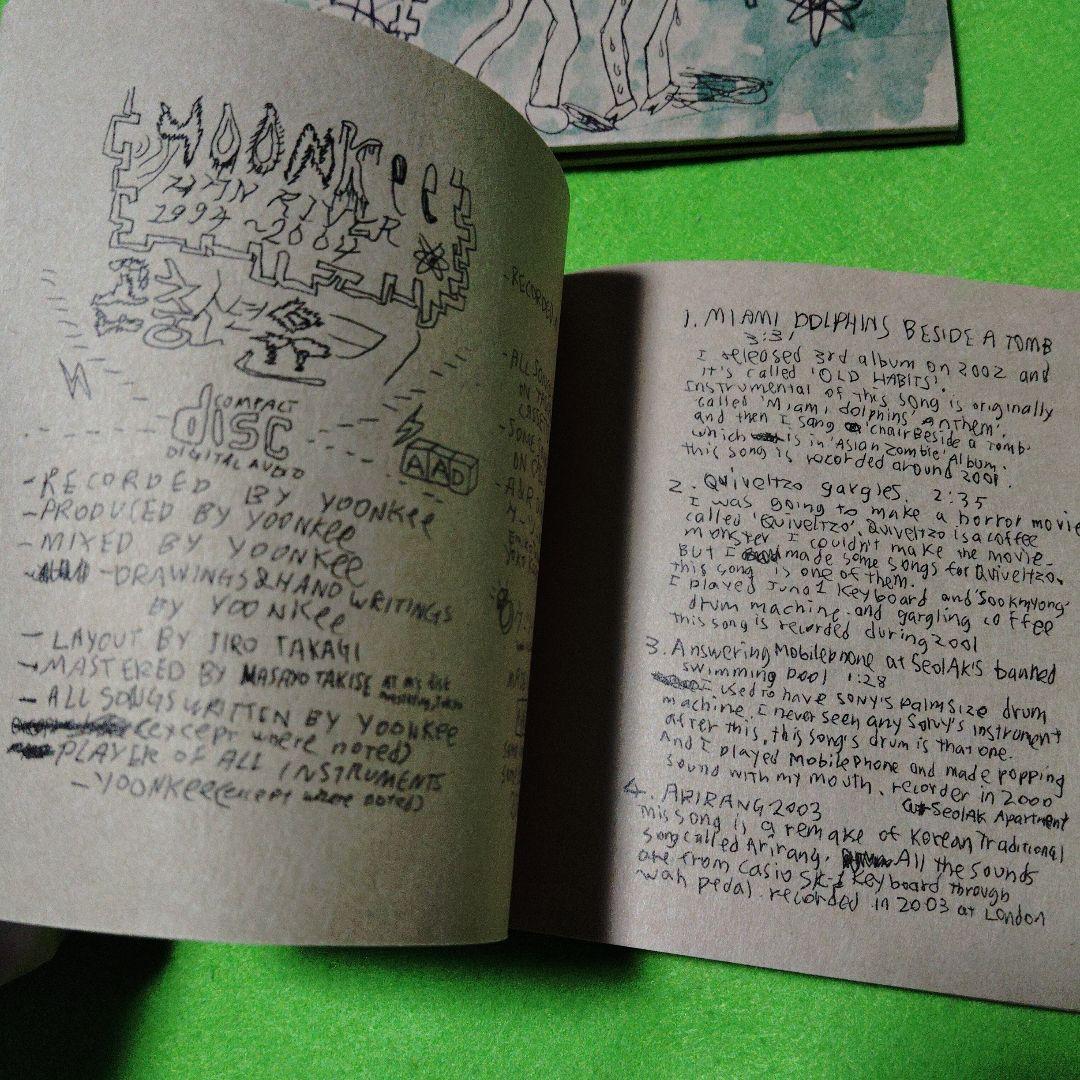 YOONKee
HAN RIVER
1994 ~ 2004
COMPACT
disc
DIGITAL AUDIO
AAD
- RECORDED BY YOONKee
- PRODUCED BY YOONKee
- MIXED BY YOONKee
- DRAWINGS & HAND WRITINGS
BY YOONKee
- LAYOUT BY JIRO TAKAGI
- MASTERED BY MASAYO TAKISE
- ALL SONGS WRITTEN BY YOONKee
(except where noted)
PLAYER OF ALL INSTRUMENTS
- YOONKee (except where noted)
- RECORDED
- ALL SONGS
- SOME
1. MIAMI DOLPHINS BESIDE A TOMB
3:31
I released 3rd album on 2002 and
it's called 'OLD HABITS'.
Instrumental of this song is originally
called 'Miami dolphins Anthem'.
and then I sang 'chair Beside a tomb'
which is in 'Asian Zombie' Album.
this song is recorded around 2001.
2. Quiveltzo gargles. 2:35
I was going to make a horror movie
called 'Quiveltzo'. Quiveltzo is a coffee
monster I couldn't make the movie.
But I made some songs for Quiveltzo.
this song is one of them.
I played Juno 1 Keyboard and 'Sookmyong'
drum machine. and gargling coffee
this song is recorded during 2001
3. Answering Mobilephone at SeolAk's banned
swimming pool 1:28
I used to have sony's palm size drum
machine. I never seen any Sony's instrument
after this, this song's drum is that one.
And I played Mobile Phone and made popping
sound with my mouth. recorder in 2000
at SeolAk Apartment
4. ARIRANG 2003
This song is a remake of Korean Traditional
song called Arirang. All the sounds
are from Casio SK-1 Keyboard through
wah pedal. recorded in 2003 at London